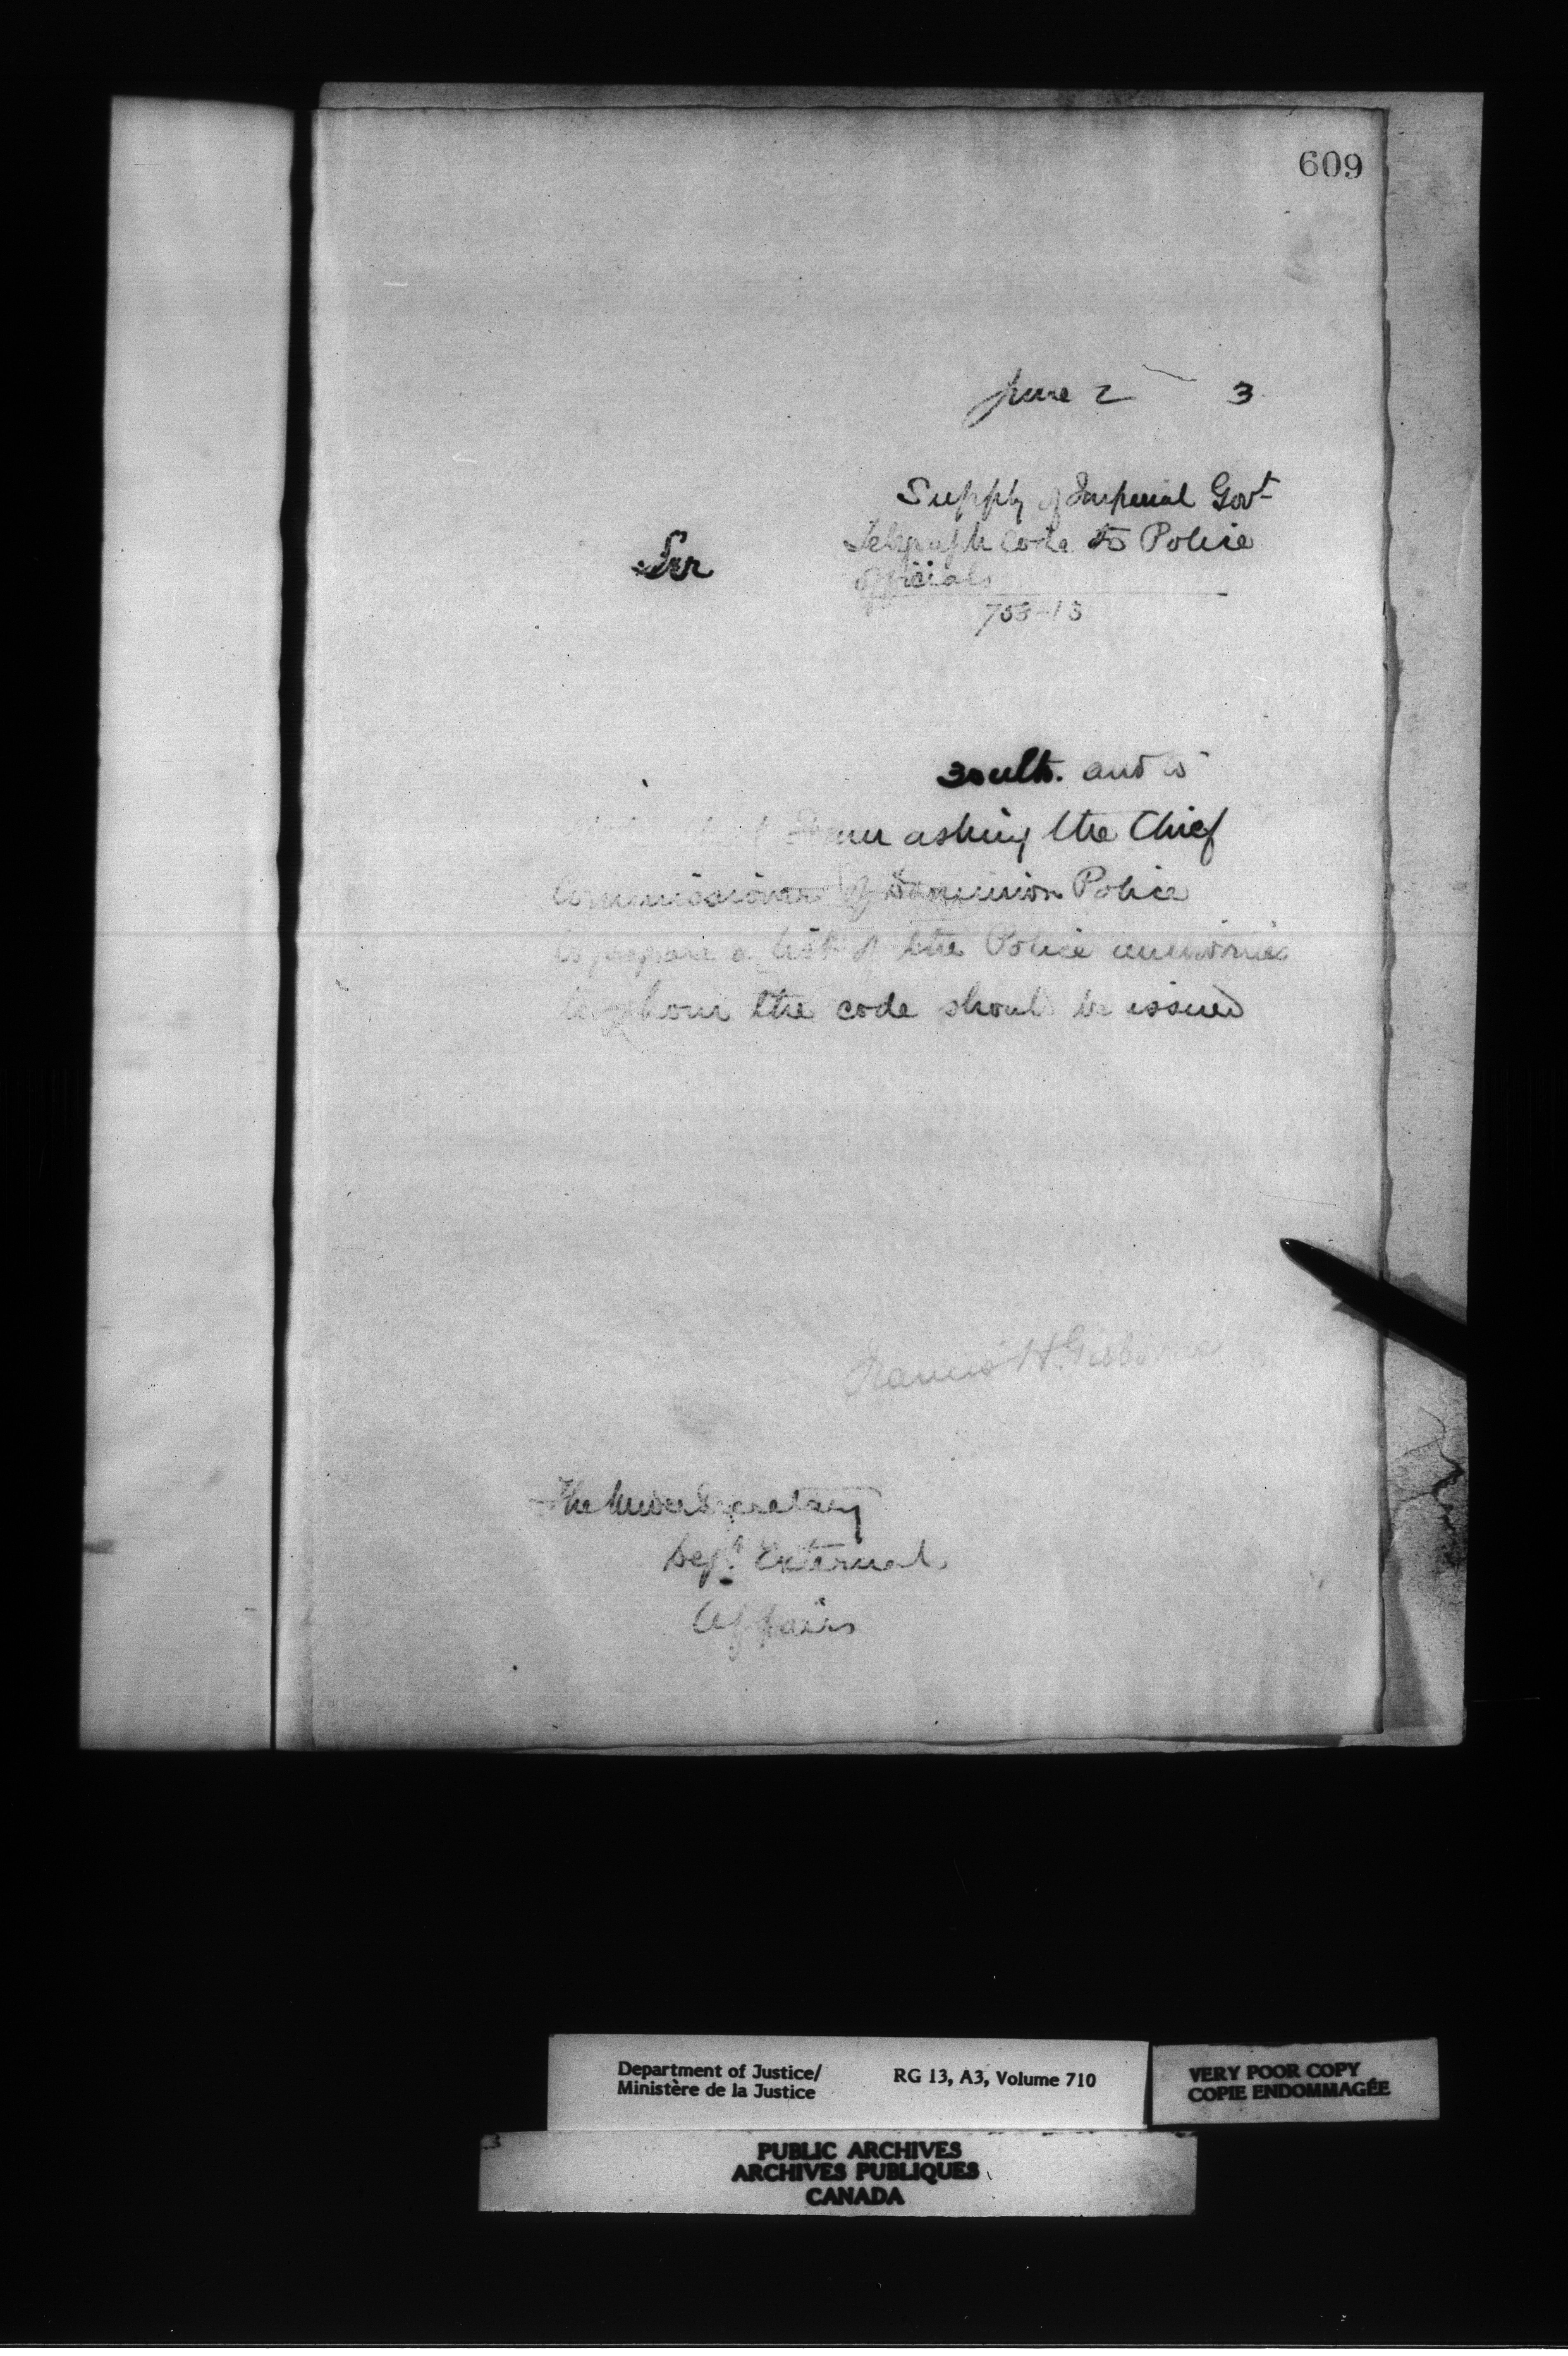 609
June 2 3
Supply of Imperial Govt
Sir
Telegraph Code to Police
Officials
753-13
30 ulto. and to
am asking the Chief
Commissioner of Dominion Police
to prepare a list of the Police authorities
to whom the code should be issued
Francis H. Gisborne
The Under Secretary
Dept. External
Affairs
Department of Justice/
Ministère de la Justice
RG 13, A3, Volume 710
VERY POOR COPY
COPIE ENDOMMAGÉE
PUBLIC ARCHIVES
ARCHIVES PUBLIQUES
CANADA